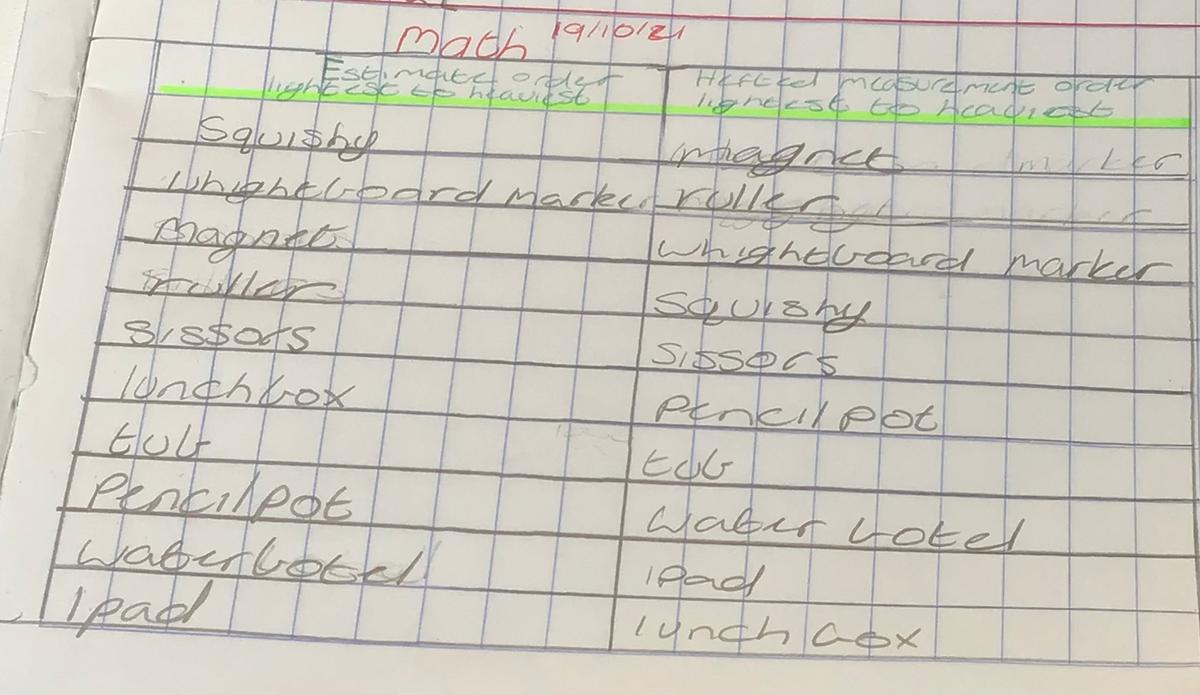 Math 19/10/21
Estimate order
lightest to heaviest
Hefted measurement order
lightest to heaviest
Squishy
magnet
whightboard marker
ruller
magnet
whightboard marker
ruller
squishy
sissors
sissors
lunchbox
pencil pot
tub
tub
Pencilpot
water botel
waterbotel
ipad
ipad
lunch box